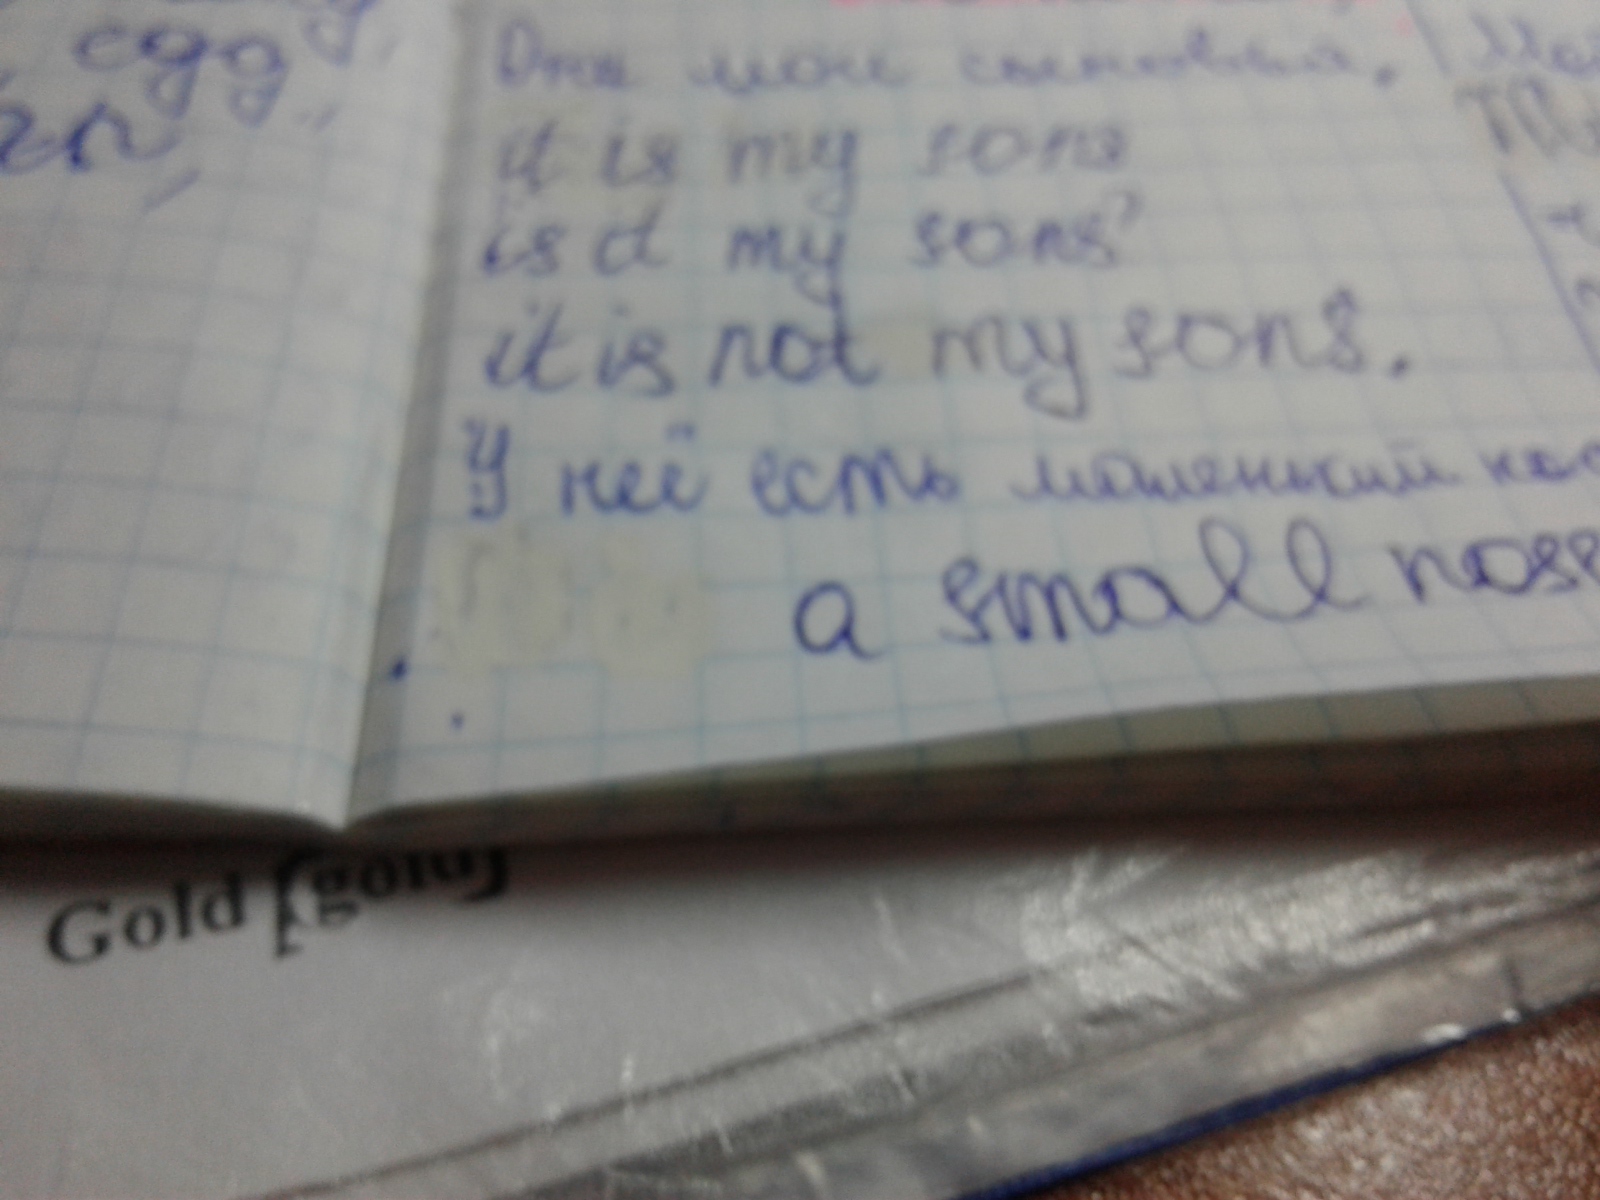 egg,
Они мои сыновья.
it is my sons
is it my sons?
it is not my sons.
У неё есть маленький нос
a small nose
Gold [gold]